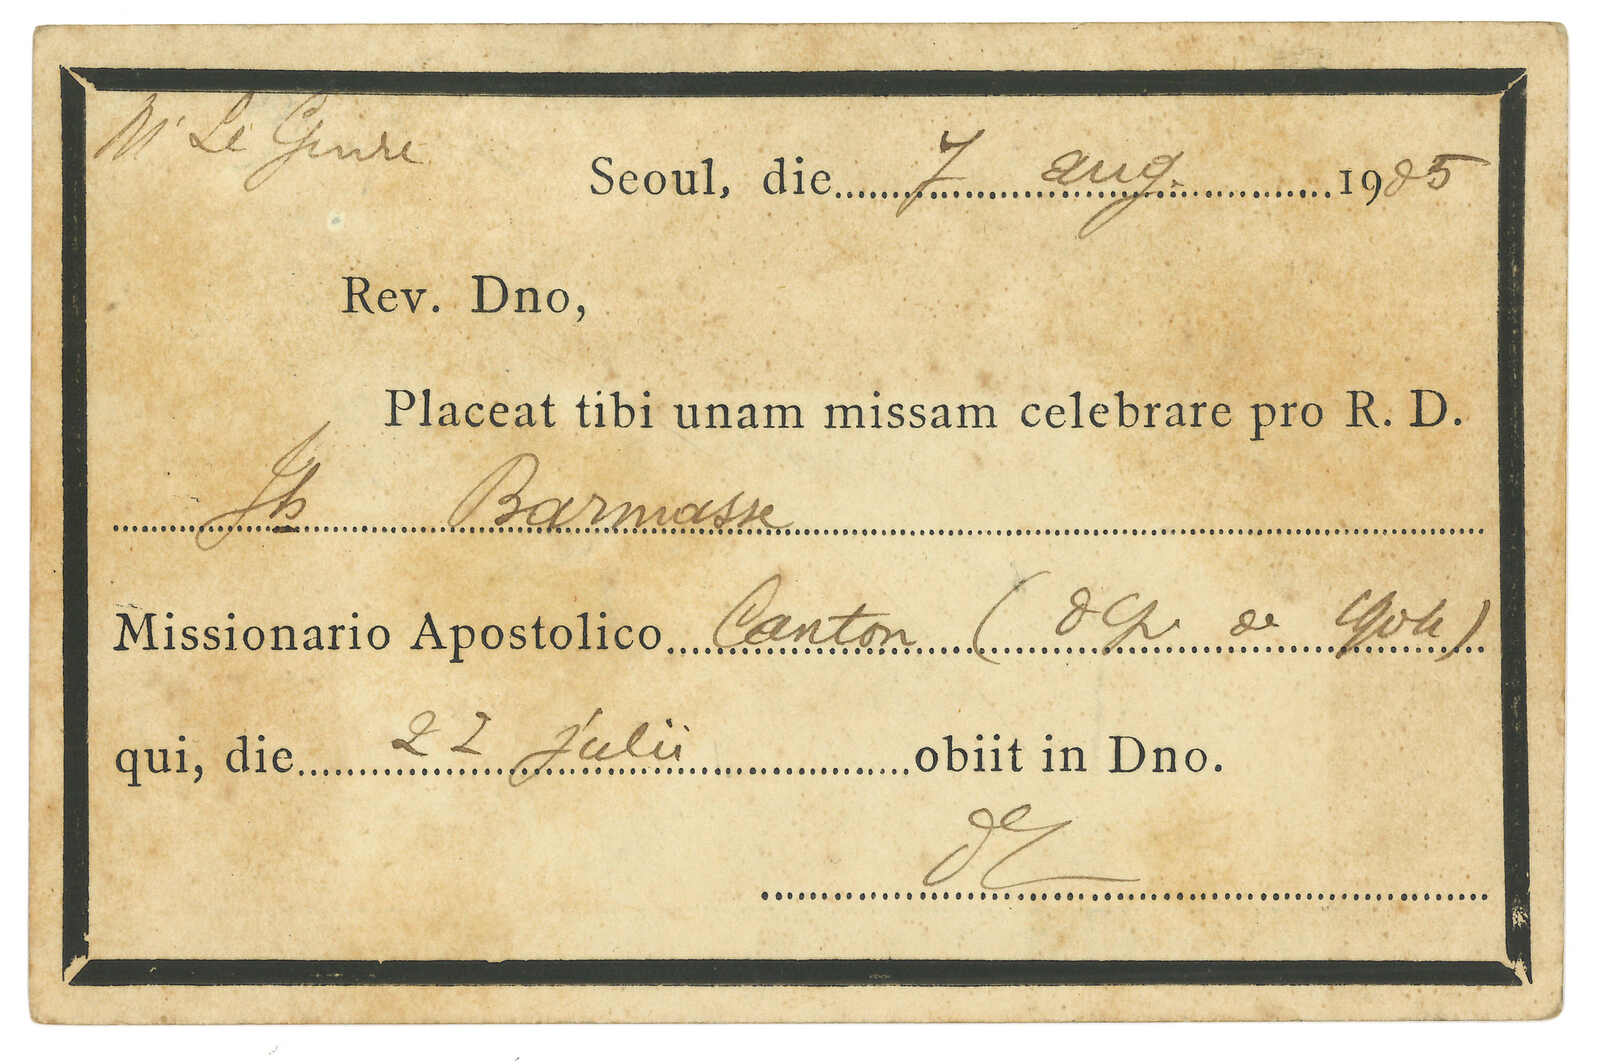 Mr Le Genre
Seoul, die 7 aug. 1905
Rev. Dno,
Placeat tibi unam missam celebrare pro R. D.
Jh Barmasse
Missionario Apostolico Canton (
qui, die 22 julii obiit in Dno.